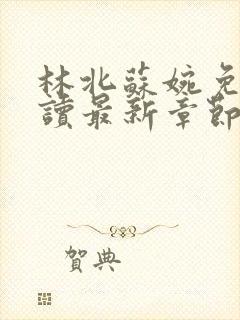 林北蘇婉免
讀最新章節
賀典